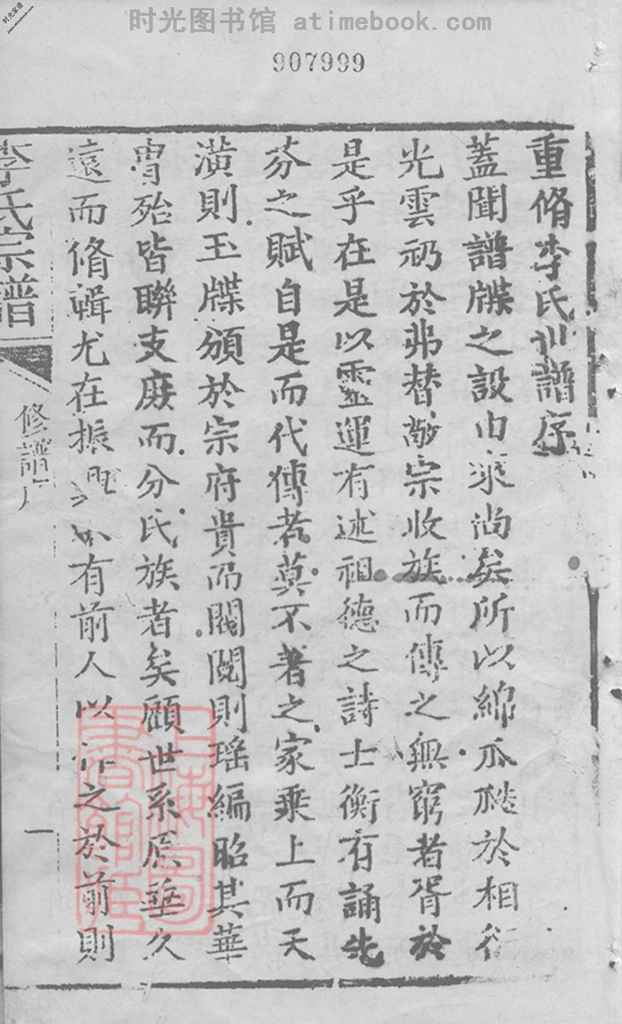 时光图书馆 atimebook.com
907999
重脩李氏世譜序
蓋聞譜牒之設由來尚矣所以綿瓜瓞於相衍
光雲礽於弗替敬宗收族而傳之無窮者胥於
是乎在是以靈運有述祖德之詩士衡有誦先
芬之賦自是而代傳者莫不著之家乘上而天
潢則玉牒頒於宗府貴而閥閱則瑶編昭其華
胄殆皆聯支庶而分氏族者矣顧世系原華久
遠而脩輯尤在振有前人以作之於前則
李氏宗譜
修譜序
一